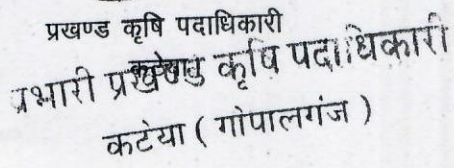 प्रखण्ड कृषि पदाधिकारी
प्रभारी प्रखण्ड कृषि पदाधिकारी
कटेया ( गोपालगंज )